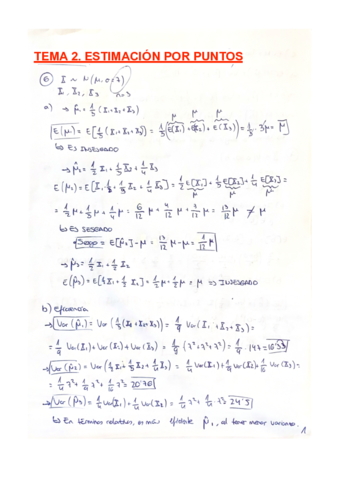 TEMA 2. ESTIMACIÓN POR PUNTOS
⑥ X ~ N(μ, σ=7)
X₁, X₂, X₃ n=3
a) → μ̂₁ = 1/3 (X₁+X₂+X₃)
E(μ̂₁) = E[1/3 (X₁+X₂+X₃)] = 1/3 (E(X₁)+E(X₂)+E(X₃)) = 1/3 · 3μ = μ
↳ ES INSESGADO
→ μ̂₂ = 1/2 X₁ + 1/3 X₂ + 1/4 X₃
E(μ̂₂) = E[X₁·1/2 + 1/3 X₂ + 1/4 X₃] = 1/2 E[X₁] + 1/3 E[X₂] + 1/4 E[X₃] =
= 1/2 μ + 1/3 μ + 1/4 μ = 6/12 μ + 4/12 μ + 3/12 μ = 13/12 μ ≠ μ
↳ ES SESGADO
→ Sesgo = E[μ̂₂] - μ = 13/12 μ - μ = 1/12 μ
→ μ̂₃ = 1/2 X₁ + 1/2 X₂
E(μ̂₃) = E[1/2 X₁ + 1/2 X₂] = 1/2 μ + 1/2 μ = μ ⇒ INSESGADO
b) Eficiencia
→ Var(μ̂₁) = Var(1/3 (X₁+X₂+X₃)) = 1/9 Var(X₁+X₂+X₃) =
= 1/9 Var(X₁) + Var(X₂) + Var(X₃) = 1/9 (7²+7²+7²) = 1/9 · 147 = 16'33
→ Var(μ̂₂) = Var(1/2 X₁ + 1/3 X₂ + 1/4 X₃) = 1/4 Var(X₁) + 1/9 Var(X₂) + 1/16 Var(X₃) =
= 1/4 7² + 1/9 7² + 1/16 7² = 20'76
→ Var(μ̂₃) = 1/4 Var(X₁) + 1/4 Var(X₂) = 1/4 7² + 1/4 · 7² = 24'5
↳ En términos relativos, es más eficiente μ̂₁, al tener menor varianza.
1